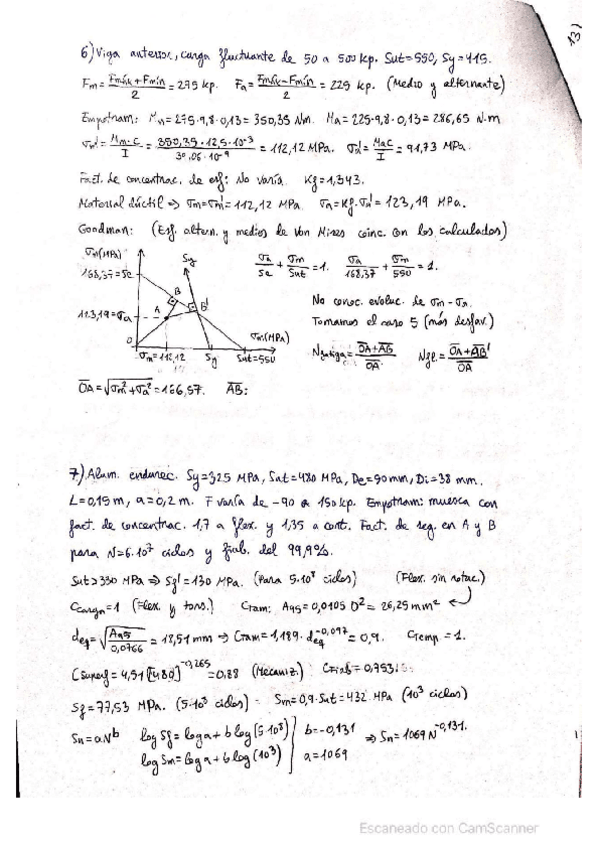 131
6) Viga anterior, carga fluctuante de 50 a 500 kp. Sut=550, Sy=415.
Fm = (Fmáx+Fmín)/2 = 275 kp. Fa = (Fmáx-Fmín)/2 = 225 kp. (Medio y alternante)
Empotram: Mm=275·9,8·0,13=350,35 Nm. Ma=225·9,8·0,13=286,65 N·m
σm' = Mm·C/I = 350,35·12,5·10⁻³/30,06·10⁻⁹ = 112,12 MPa. σa' = MaC/I = 91,73 MPa.
Fact. de concentrac. de esf: No varía. Kf=1,343.
Material dúctil ⇒ σm=σm'=112,12 MPa. σa=Kf·σa'=123,19 MPa.
Goodman: (Esf. altern. y medios de Von Mises coinc. con los calculados)
σa/Se + σm/Sut = 1. σa/168,37 + σm/550 = 1.
No conoc. evoluc. de σm-σa.
Tomamos el caso 5 (más desfav.)
Nfatiga = (OA+AB)/OA Nfl. = (OA+AB')/OA
σa(MPa)
168,37=Se
Sy
B
B'
A
123,19=σa
0
σm(MPa)
σm=112,12
Sy
Sut=550
OA=√(σm²+σa²)=166,57. AB:
7) Alum. endurec. Sy=325 MPa, Sut=480 MPa, De=90mm, Di=38 mm.
L=0,15 m, a=0,2 m. F varía de -90 a 150 kp. Empotram: muesca con
fact. de concentrac. 1,7 a flex. y 1,35 a cort. Fact. de seg. en A y B
para N=6·10⁷ ciclos y fiab. del 99,9%.
Sut>330 MPa ⇒ Sf'=130 MPa. (Para 5·10⁸ ciclos) (Flex. sin rotac.)
Ccarga=1 (Flex. y tors.) Ctam: A95=0,0105 D²=26,25 mm²
deq=√(A95/0,0766)=18,51 mm ⇒ Ctam=1,189·deq⁻⁰·⁰⁹⁷=0,9. Ctemp=1.
Csuperf=4,51[480]⁻⁰·²⁶⁵=0,88 (Mecaniz.) Cfiab=0,753
Sf=77,53 MPa. (5·10⁸ ciclos) Sm=0,9·Sut=432 MPa (10³ ciclos)
Sn=aNᵇ log Sf=log a+b log(5·10⁸) b=-0,131 ⇒ Sn=1069 N⁻⁰·¹³¹.
log Sm=log a+b log(10³) a=1069
Escaneado con CamScanner